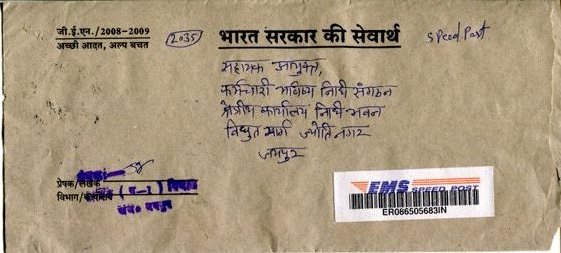 जी.ई.एन./2008-2009
अच्छी आदत, अल्प बचत
2035
भारत सरकार की सेवार्थ
Speed Post
सहायक आयुक्त,
कर्मचारी भविष्य निधि संगठन
क्षेत्रीय कार्यालय निधि भवन
विद्युत मार्ग ज्योति नगर
जयपुर
प्रेषक/लेखक
विभाग/
EMS SPEED POST
ER086505683IN